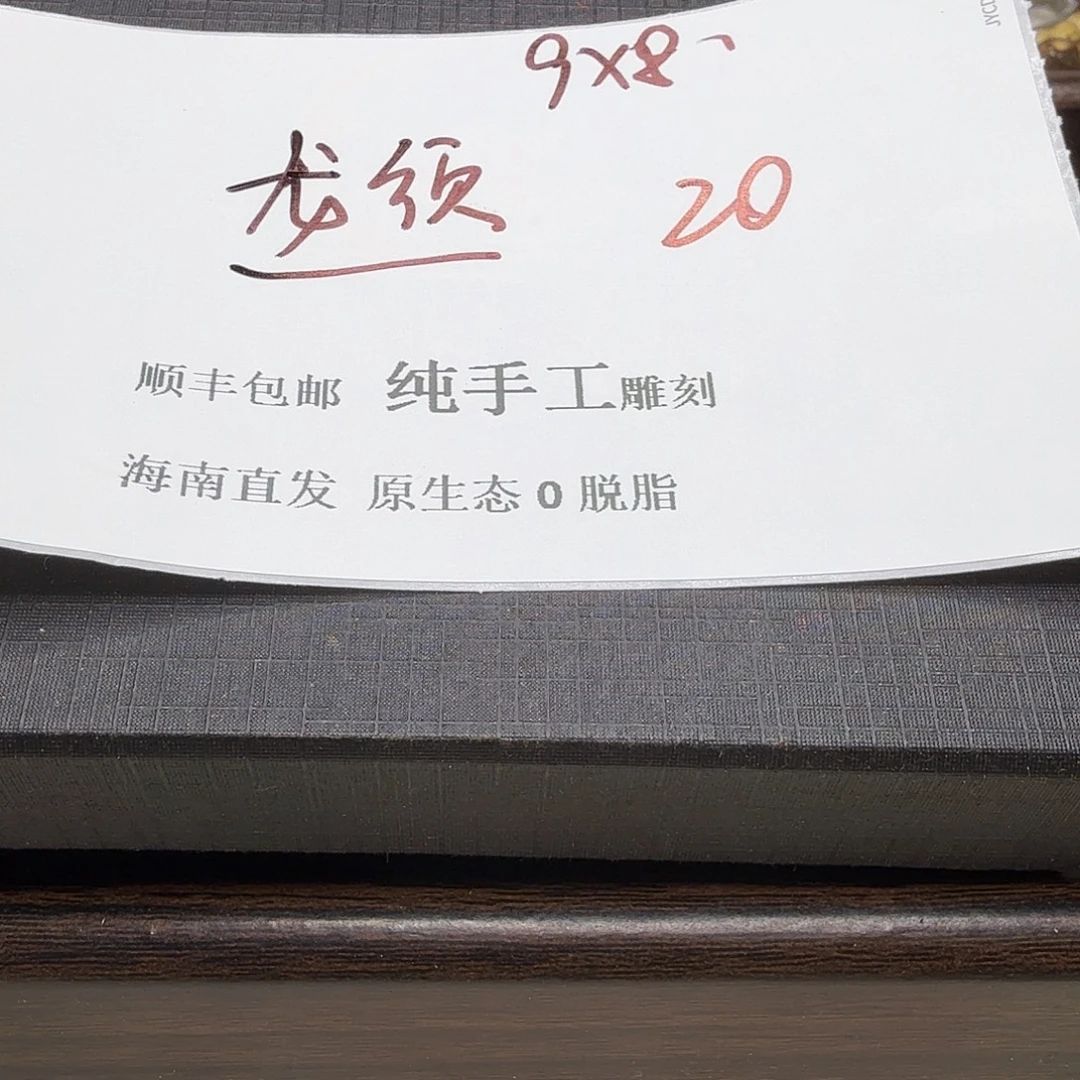 9x8
龙须 20
顺丰包邮 纯手工雕刻
海南直发 原生态0脱脂